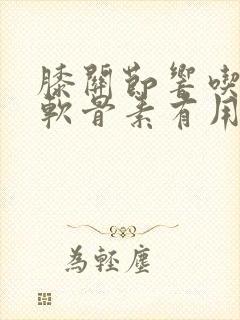 膝關節響喫
軟骨素有用
為輕塵